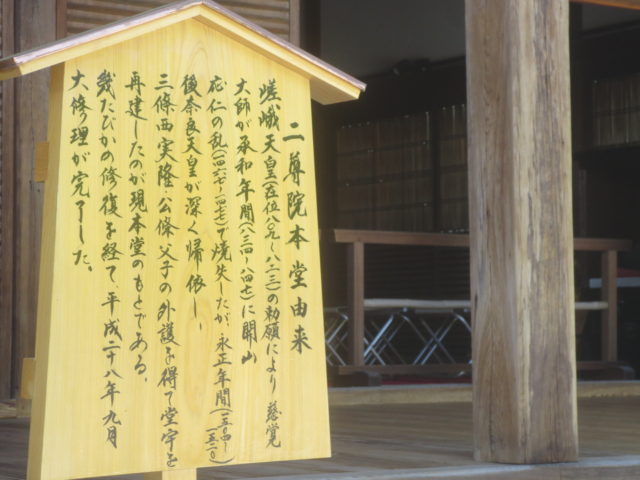 二尊院本堂由来
嵯峨天皇(在位八〇九〜八二三)の勅願により 慈覚
大師が承和年間(八三四〜八四七)に開山
応仁の乱(一四六七〜一四七七)で焼失したが、永正年間(一五〇四〜一五二〇)
後奈良天皇が深く帰依し、
三條西実隆・公條父子の外護を得て堂宇を
再建したのが現本堂のもとである。
幾たびかの修復を経て、平成二十八年九月
大修理が完了した。